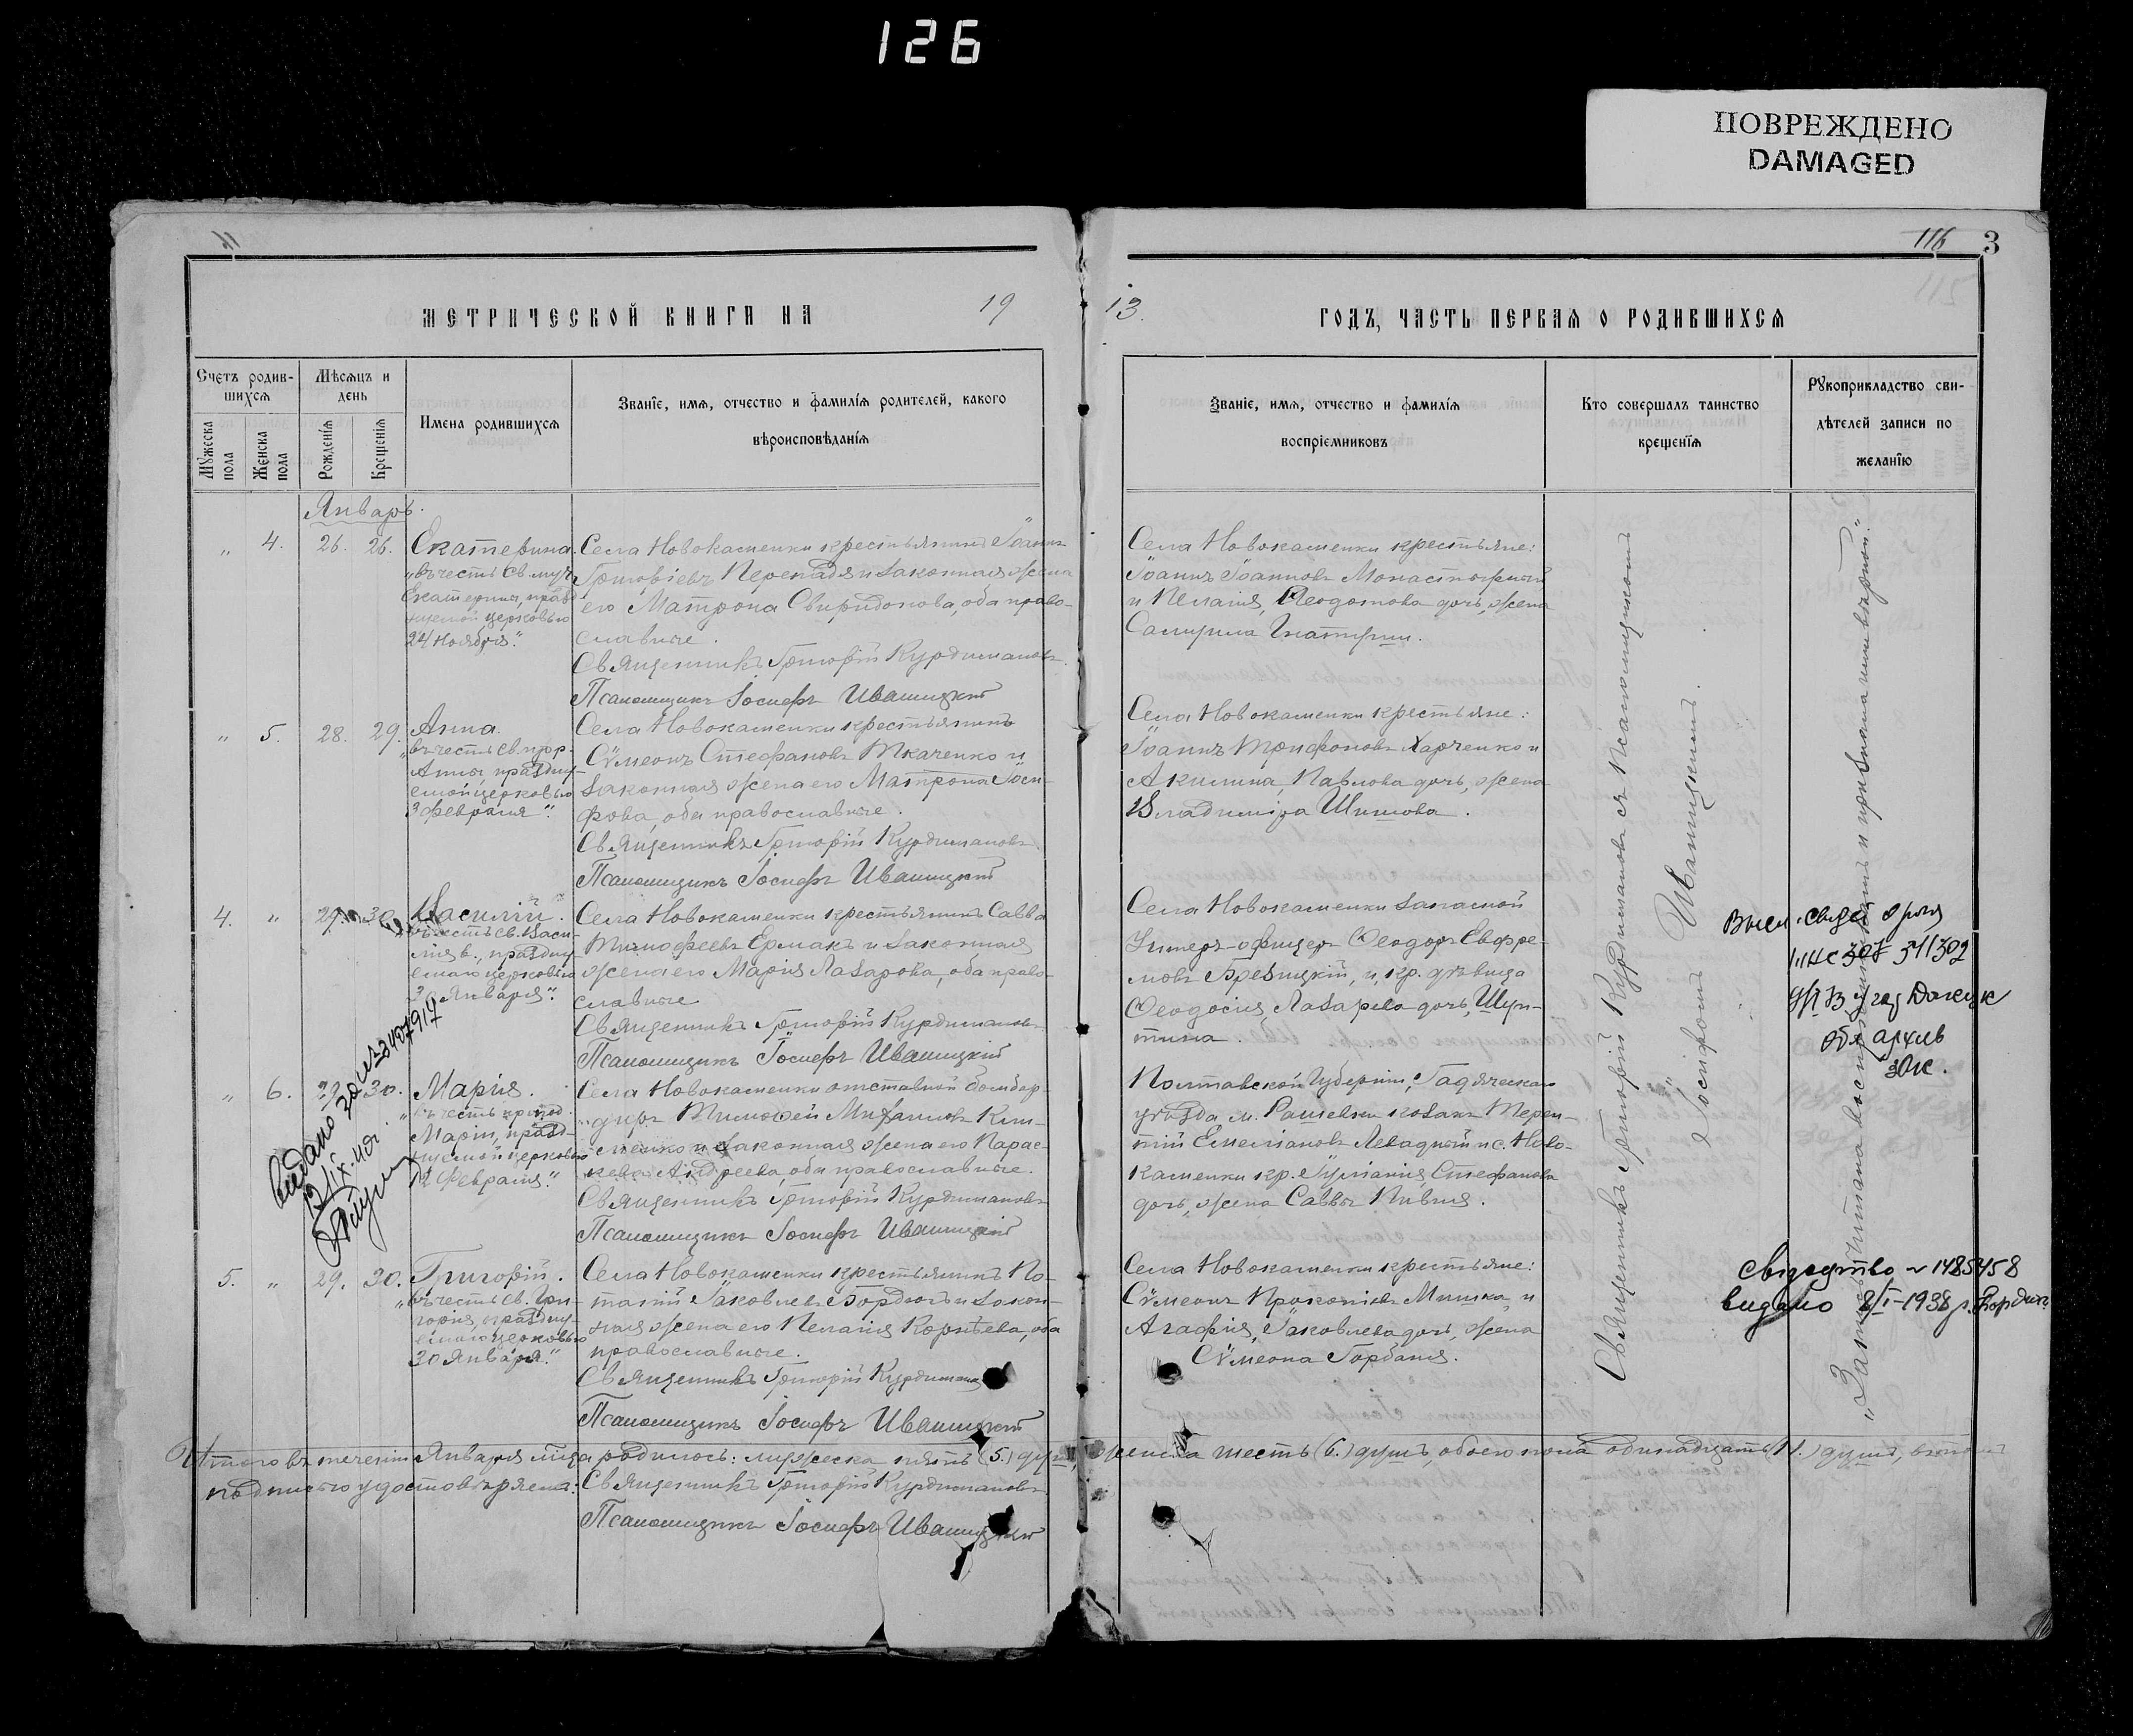 126
ПОВРЕЖДЕНО
DAMAGED
116 3
МЕТРИЧЕСКОЙ КНИГИ НА 19
13. ГОДЪ, ЧАСТЬ ПЕРВАЯ О РОДИВШИХСЯ
Счетъ родив-
шихся
Мѣсяцъ и
день
Мужеска
пола
Женска
пола
Рожденія
Крещенія
Имена родившихся
Званіе, имя, отчество и фамилія родителей, какого
вѣроисповѣданія
Званіе, имя, отчество и фамилія
воспріемниковъ
Кто совершалъ таинство
крещенія
Рукоприкладство сви-
дѣтелей записи по
желанію
Январь.
„ 4. 26. 26.
Екатерина.
„въ честь св. муч.
Екатерины, празд
нуемой церковью
24 Ноября."
Села Новокаменки крестьянинъ Іоаннъ
Григоріевъ и законная жена
его Матрона Свиридонова, оба право-
славные.
Священникъ Григорій Курдимановъ
Псаломщикъ Іосифъ Ивашицкій
Села Новокаменки крестьяне:
Іоаннъ Іоанновъ Монастырный
и Пелагія, Ѳеодотова дочь, жена
„ 5. 28. 29.
Анна.
„въ честь св. прор.
Анны, праздну-
емой церковью
3 Февраля".
Села Новокаменки крестьянинъ
Сѵмеонъ Стефановъ Ткаченко и
законная жена его Матрона Іоси-
фова, оба православные.
Священникъ Григорій Курдимановъ
Псаломщикъ Іосифъ Ивашицкій
Села Новокаменки крестьяне:
Іоаннъ Трифоновъ Харченко и
Акилина, Павлова дочь, жена
Владиміра Шишова.
4. „ 29. 30.
Василій.
въ честь св. Васи-
лія в., праздну-
емаго церковью
30 Января".
Села Новокаменки крестьянинъ Савва
Тимофеевъ Ермакъ и законная
жена его Марія Лазарова, оба право-
славные
Священникъ Григорій Курдимановъ
Псаломщикъ Іосифъ Ивашицкій
Села Новокаменки запасной
Унтеръ-офицеръ Ѳеодоръ Евфре-
мовъ и кр. дѣвица
Ѳеодосія Лазарева дочь,
„ 6. 29. 30.
Марія.
въ честь препод.
Маріи, празд-
нуемой церковью
12 Февраля."
Села Новокаменки отставной бомбар-
диръ Тимофей Михаиловъ Кли-
менко и законная жена его Парас-
кева Андреева, оба православные.
Священникъ Григорій Курдимановъ
Псаломщикъ Іосифъ Ивашицкій
Полтавской Губерніи, Гадяческаго
уѣзда м. Рашевки козакъ Терен-
тій Емеліановъ Левадный и с. Ново-
каменки кр. Іуліанія, Стефанова
дочь, жена Саввы Кивля.
5. „ 29. 30.
Григорій.
„въ честь св. Гри-
горія, праздну-
емаго церковью
30 Января."
Села Новокаменки крестьянинъ По-
тапій Іаковлевъ Бордюгъ и закон-
ная жена его Пелагія Корнѣева, оба
православные.
Священникъ Григорій Курдимановъ
Псаломщикъ Іосифъ Ивашицкій
Села Новокаменки крестьяне:
Сѵмеонъ Прокопіевъ Мишка и
Агафія, Іаковлева дочь, жена
Сѵмеона Горбаня.
Священникъ Григорій Курдимановъ съ Псаломщикомъ
Іосифомъ Ивашицкимъ.
архив
Свідоцтво № 1485458
видано 8/I-1938 р.
видано
12/IX-40г.
Итого въ теченіи Января м-ца родилось: мужеска пять (5.) душъ, женска шесть (6.) душъ, обоего пола одинадцать (11.) душъ,
подписью удостовѣряемъ: Священникъ Григорій Курдимановъ
Псаломщикъ Іосифъ Ивашицкій